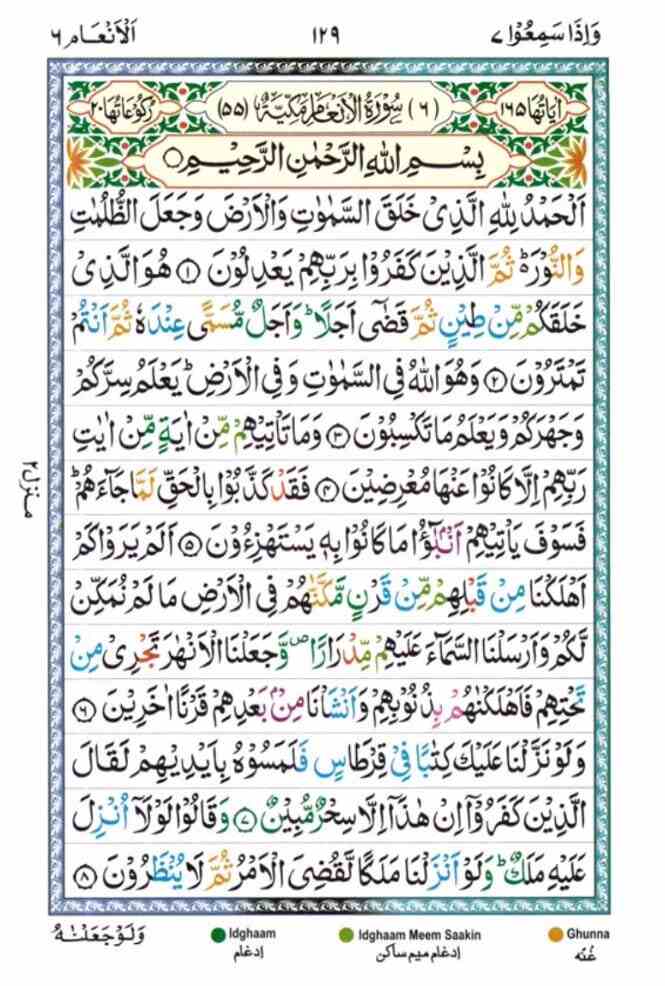 وَاِذَا سَمِعُوْا ٧ ١٢٩ اَلْاَنْعَام ٦
اٰیَاتُهَا ١٦٥ (٦) سُوْرَةُ الْاَنْعَامِ مَكِّیَّةٌ (٥٥) رُكُوْعَاتُهَا ٢٠
بِسْمِ اللّٰهِ الرَّحْمٰنِ الرَّحِیْمِ
اَلْحَمْدُ لِلّٰهِ الَّذِیْ خَلَقَ السَّمٰوٰتِ وَالْاَرْضَ وَجَعَلَ الظُّلُمٰتِ
وَالنُّوْرَ ؕ ثُمَّ الَّذِیْنَ كَفَرُوْا بِرَبِّهِمْ یَعْدِلُوْنَ ۝١ هُوَ الَّذِیْ
خَلَقَكُمْ مِّنْ طِیْنٍ ثُمَّ قَضٰۤی اَجَلًا ؕ وَاَجَلٌ مُّسَمًّی عِنْدَهٗ ثُمَّ اَنْتُمْ
تَمْتَرُوْنَ ۝٢ وَهُوَ اللّٰهُ فِی السَّمٰوٰتِ وَفِی الْاَرْضِ ؕ یَعْلَمُ سِرَّكُمْ
وَجَهْرَكُمْ وَیَعْلَمُ مَا تَكْسِبُوْنَ ۝٣ وَمَا تَاْتِیْهِمْ مِّنْ اٰیَةٍ مِّنْ اٰیٰتِ
رَبِّهِمْ اِلَّا كَانُوْا عَنْهَا مُعْرِضِیْنَ ۝٤ فَقَدْ كَذَّبُوْا بِالْحَقِّ لَمَّا جَآءَهُمْ ؕ
فَسَوْفَ یَاْتِیْهِمْ اَنْۢبٰٓؤُا مَا كَانُوْا بِهٖ یَسْتَهْزِءُوْنَ ۝٥ اَلَمْ یَرَوْا كَمْ
اَهْلَكْنَا مِنْ قَبْلِهِمْ مِّنْ قَرْنٍ مَّكَّنّٰهُمْ فِی الْاَرْضِ مَا لَمْ نُمَكِّنْ
لَّكُمْ وَاَرْسَلْنَا السَّمَآءَ عَلَیْهِمْ مِّدْرَارًا ۪ وَّجَعَلْنَا الْاَنْهٰرَ تَجْرِیْ مِنْ
تَحْتِهِمْ فَاَهْلَكْنٰهُمْ بِذُنُوْبِهِمْ وَاَنْشَاْنَا مِنْۢ بَعْدِهِمْ قَرْنًا اٰخَرِیْنَ ۝٦
وَلَوْ نَزَّلْنَا عَلَیْكَ كِتٰبًا فِیْ قِرْطَاسٍ فَلَمَسُوْهُ بِاَیْدِیْهِمْ لَقَالَ
الَّذِیْنَ كَفَرُوْۤا اِنْ هٰذَاۤ اِلَّا سِحْرٌ مُّبِیْنٌ ۝٧ وَقَالُوْا لَوْلَاۤ اُنْزِلَ
عَلَیْهِ مَلَكٌ ؕ وَلَوْ اَنْزَلْنَا مَلَكًا لَّقُضِیَ الْاَمْرُ ثُمَّ لَا یُنْظَرُوْنَ ۝٨
منزل ٢
وَلَوْ جَعَلْنٰهُ
Idghaam Idghaam Meem Saakin Ghunna
ادغام ادغام میم ساکن غُنّه